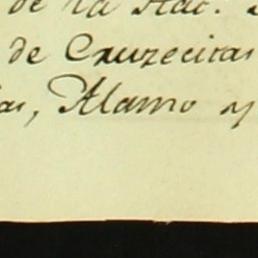 de la Hac.
de Cruzecitas
as, Alamo y